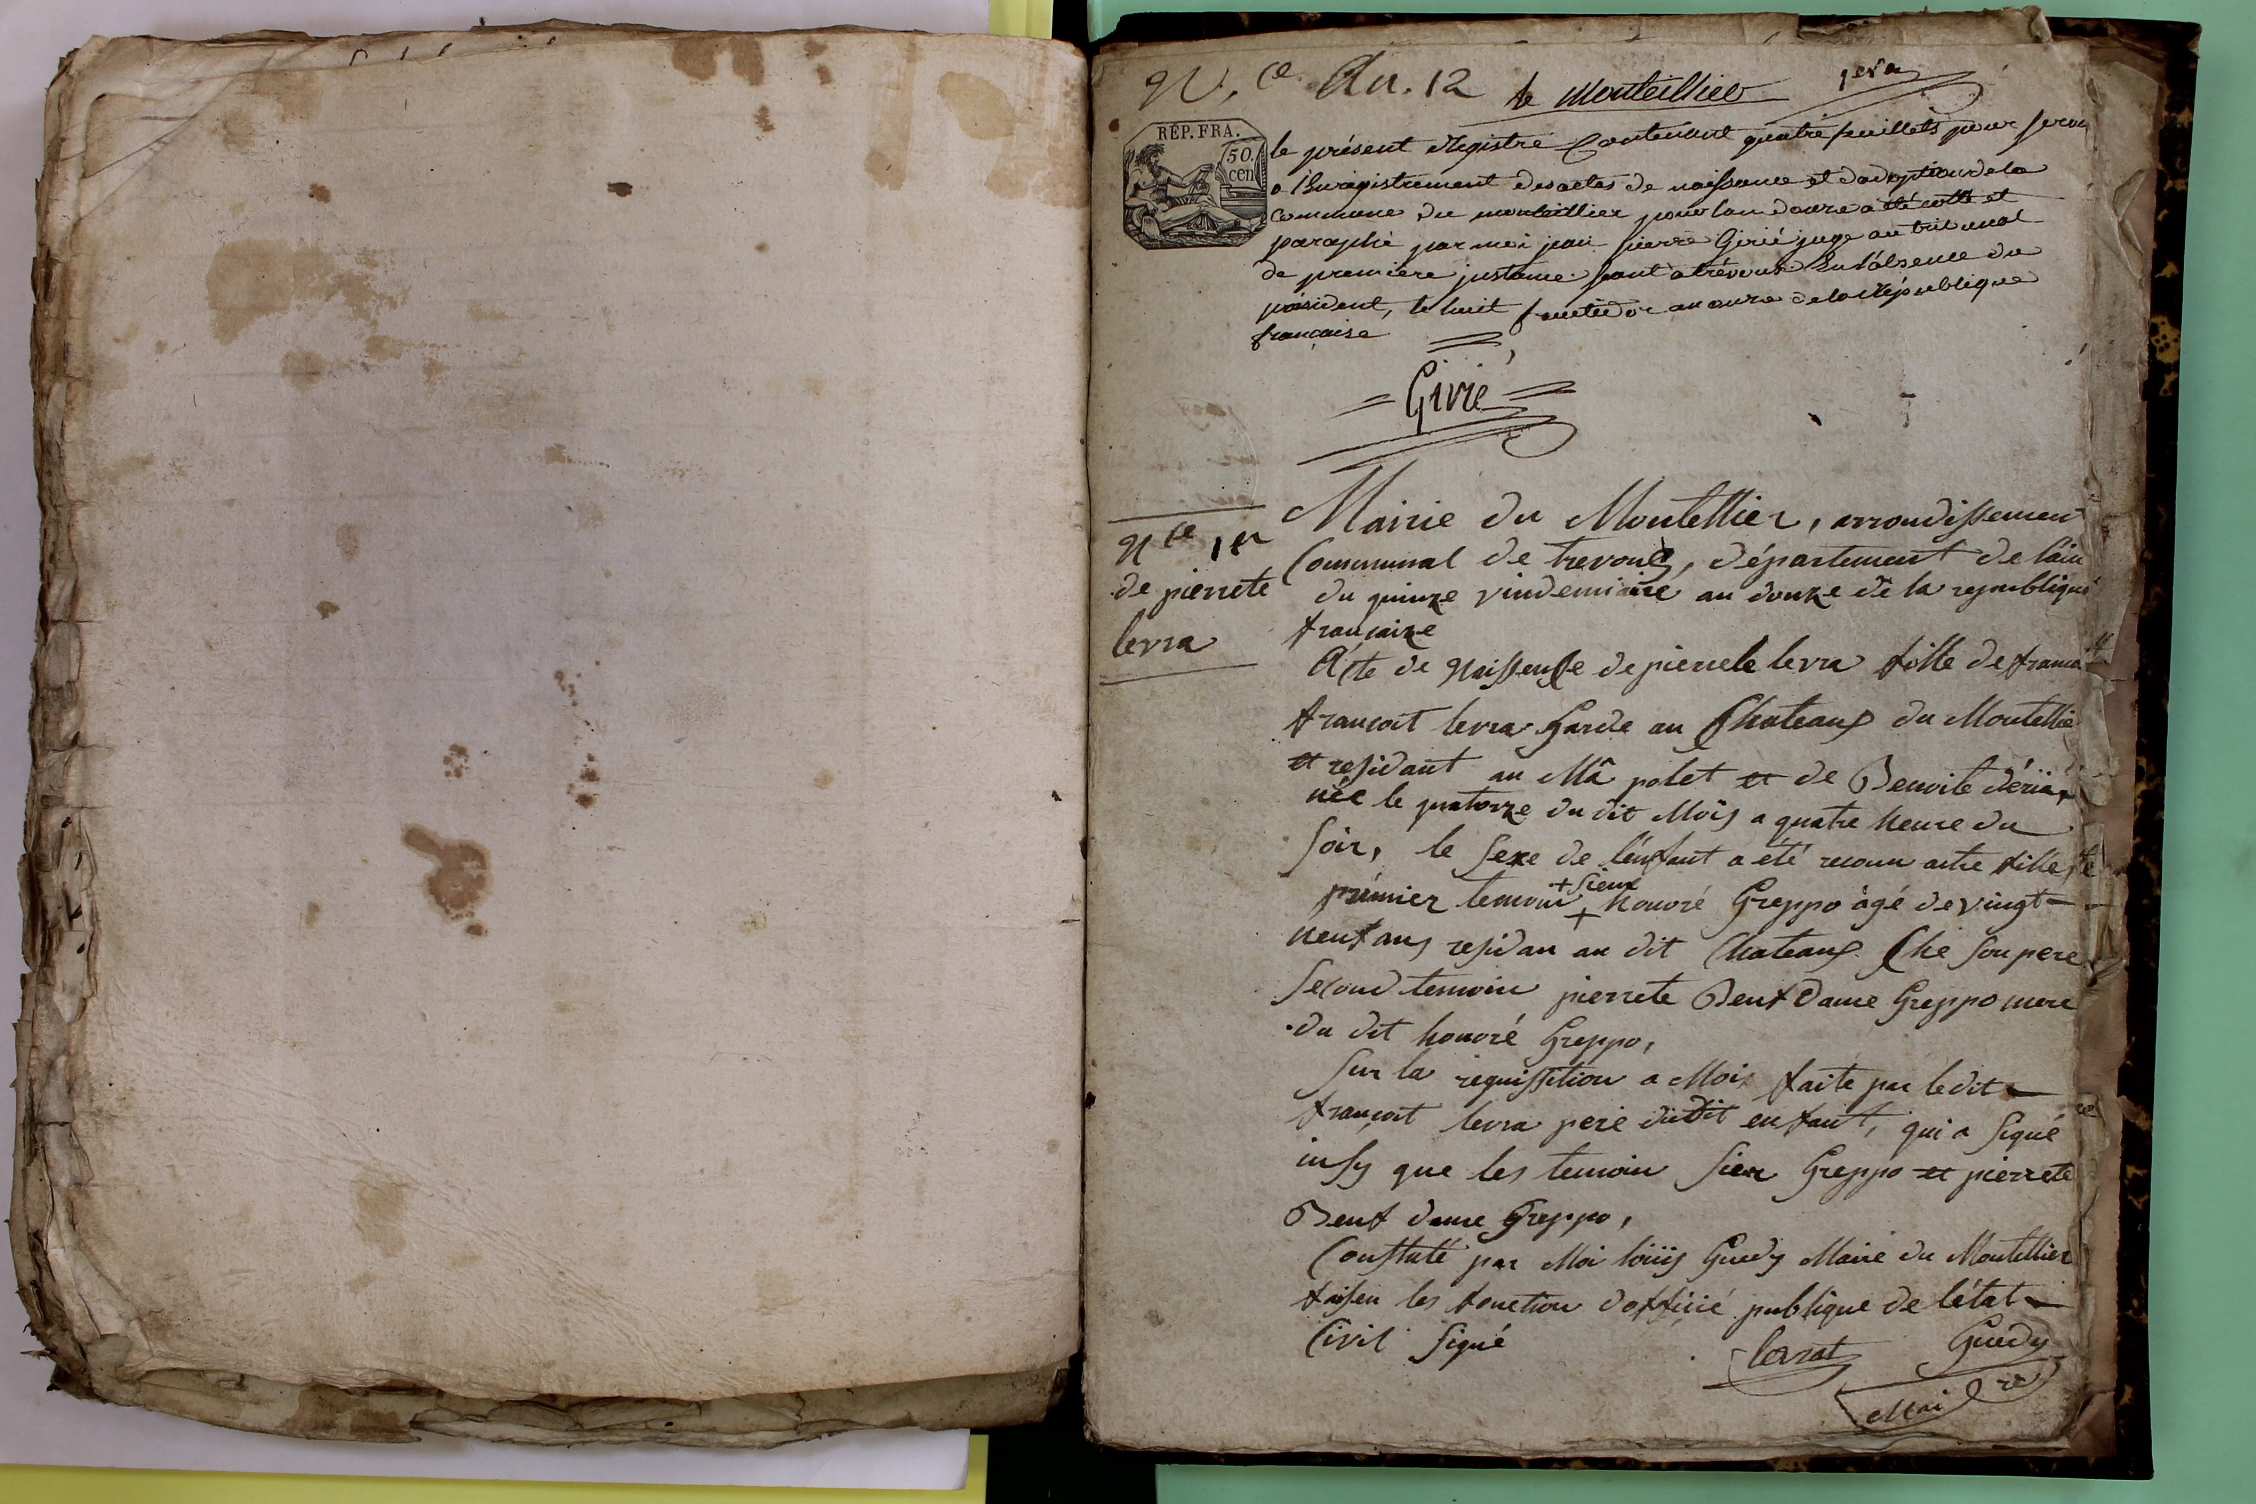 N.ce An. 12 le Monteillier
RÉP. FRA.
50.
cen
le présent Registre Contenant quatre feuillets pour servir
a l'Enregistrement des actes de naissance et d'adoption de la
Commune du monteillier pour l'an douze a été cotté et
paraphé par moi jean pierre Girié juge au tribunal
de premiere justance seant a trévoux En l'absence du
président, le huit fructidor an onze de la République
française
Girié
Nce 1er
de pierrete
levra
Mairie du Montellier, arrondissement
Communal de trevoug, département de l'ain
du quinze vindemiaire an douze de la republique
françaize
Acte de Naissense de pierrete levra fille de
françoit levra Garde au Chateaux du Montellie
et residant au Mâ polet et de Benoite
née le quatorze du dit Mois a quatre heure du
soir, le sexe de l'énfant a été reconu aitre fille,
prémier temoin + sieur
+ honoré Greppo àgé de vingt
neuf ans residan au dit Chateaux Ché son pere
second temoin pierrete Beuf Dame Greppo mere
du dit honoré Greppo,
sur la requissition a Moi faite par ledit
françoit levra pere dudit enfant, qui a signé
insy que les temoin sier Greppo et pierrete
Beuf dame Greppo,
Constaté par Moi loüis Guedy Maire du Montellier
faisen les fonction d'officié publique de l'état
Civil signé
levrat Guedy
Maire